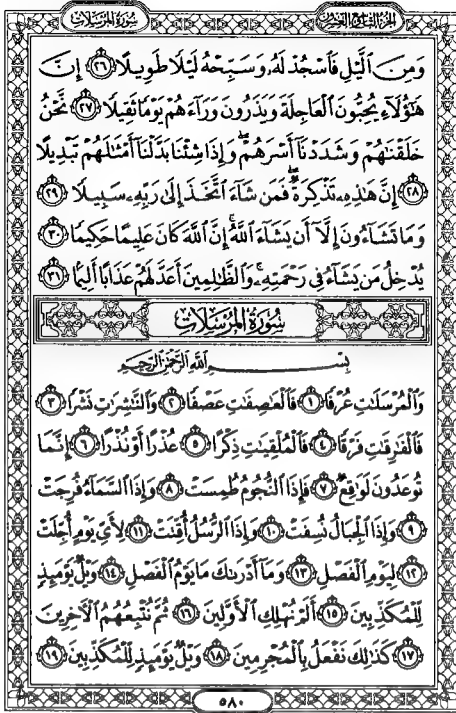 الجزء التاسع والعشرون سورة المرسلات
وَمِنَ ٱلَّيْلِ فَٱسْجُدْ لَهُۥ وَسَبِّحْهُ لَيْلًا طَوِيلًا ٢٦ إِنَّ
هَٰٓؤُلَآءِ يُحِبُّونَ ٱلْعَاجِلَةَ وَيَذَرُونَ وَرَآءَهُمْ يَوْمًا ثَقِيلًا ٢٧ نَّحْنُ
خَلَقْنَٰهُمْ وَشَدَدْنَآ أَسْرَهُمْ ۖ وَإِذَا شِئْنَا بَدَّلْنَآ أَمْثَٰلَهُمْ تَبْدِيلًا
٢٨ إِنَّ هَٰذِهِۦ تَذْكِرَةٌ ۖ فَمَن شَآءَ ٱتَّخَذَ إِلَىٰ رَبِّهِۦ سَبِيلًا ٢٩
وَمَا تَشَآءُونَ إِلَّآ أَن يَشَآءَ ٱللَّهُ ۚ إِنَّ ٱللَّهَ كَانَ عَلِيمًا حَكِيمًا ٣٠
يُدْخِلُ مَن يَشَآءُ فِى رَحْمَتِهِۦ ۚ وَٱلظَّٰلِمِينَ أَعَدَّ لَهُمْ عَذَابًا أَلِيمًا ٣١
سُورَةُ المُرْسَلَات
بِسْمِ ٱللَّهِ ٱلرَّحْمَٰنِ ٱلرَّحِيمِ
وَٱلْمُرْسَلَٰتِ عُرْفًا ١ فَٱلْعَٰصِفَٰتِ عَصْفًا ٢ وَٱلنَّٰشِرَٰتِ نَشْرًا ٣
فَٱلْفَٰرِقَٰتِ فَرْقًا ٤ فَٱلْمُلْقِيَٰتِ ذِكْرًا ٥ عُذْرًا أَوْ نُذْرًا ٦ إِنَّمَا
تُوعَدُونَ لَوَٰقِعٌ ٧ فَإِذَا ٱلنُّجُومُ طُمِسَتْ ٨ وَإِذَا ٱلسَّمَآءُ فُرِجَتْ
٩ وَإِذَا ٱلْجِبَالُ نُسِفَتْ ١٠ وَإِذَا ٱلرُّسُلُ أُقِّتَتْ ١١ لِأَىِّ يَوْمٍ أُجِّلَتْ
١٢ لِيَوْمِ ٱلْفَصْلِ ١٣ وَمَآ أَدْرَىٰكَ مَا يَوْمُ ٱلْفَصْلِ ١٤ وَيْلٌ يَوْمَئِذٍ
لِّلْمُكَذِّبِينَ ١٥ أَلَمْ نُهْلِكِ ٱلْأَوَّلِينَ ١٦ ثُمَّ نُتْبِعُهُمُ ٱلْءَاخِرِينَ
١٧ كَذَٰلِكَ نَفْعَلُ بِٱلْمُجْرِمِينَ ١٨ وَيْلٌ يَوْمَئِذٍ لِّلْمُكَذِّبِينَ ١٩
٥٨٠